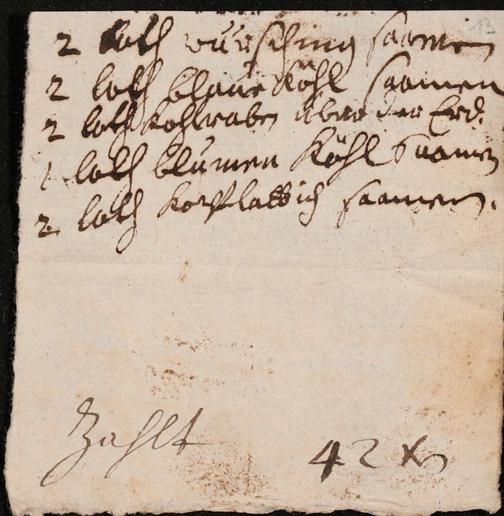 13
2 loth würsching saamen
2 loth blaue Köhl saamen
2 loth Kohlraben über der Erd.
1 loth blumen Köhl Saamen
2 loth Kopflattich saamen.
Zahlt 42 x